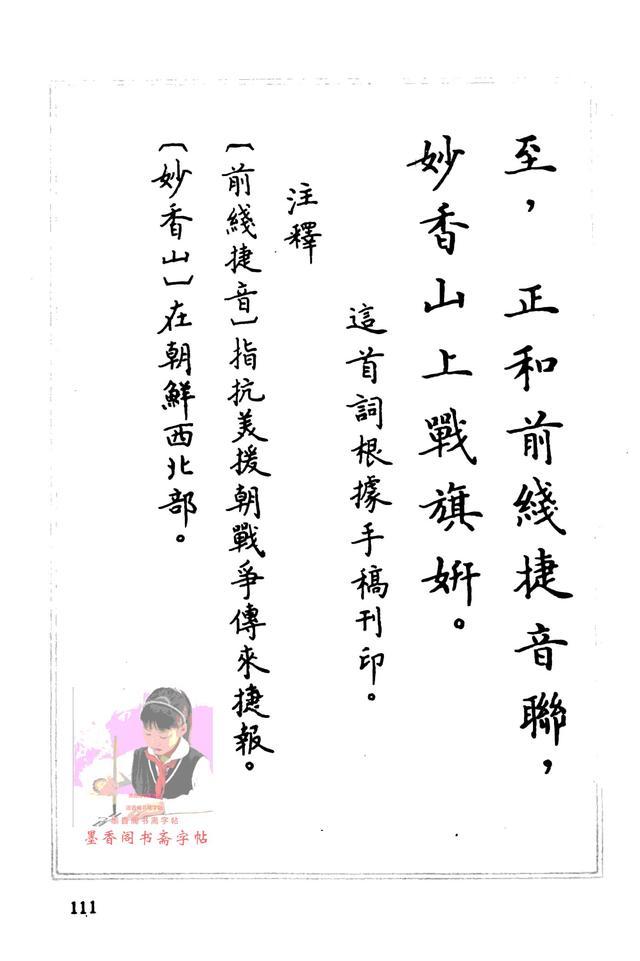 至，正和前綫捷音聯，
妙香山上戰旗妍。
這首詞根據手稿刊印。
注釋
〔前綫捷音〕指抗美援朝戰爭傳來捷報。
〔妙香山〕在朝鮮西北部。
墨香阁书斋字帖
墨香阁书斋字帖
111